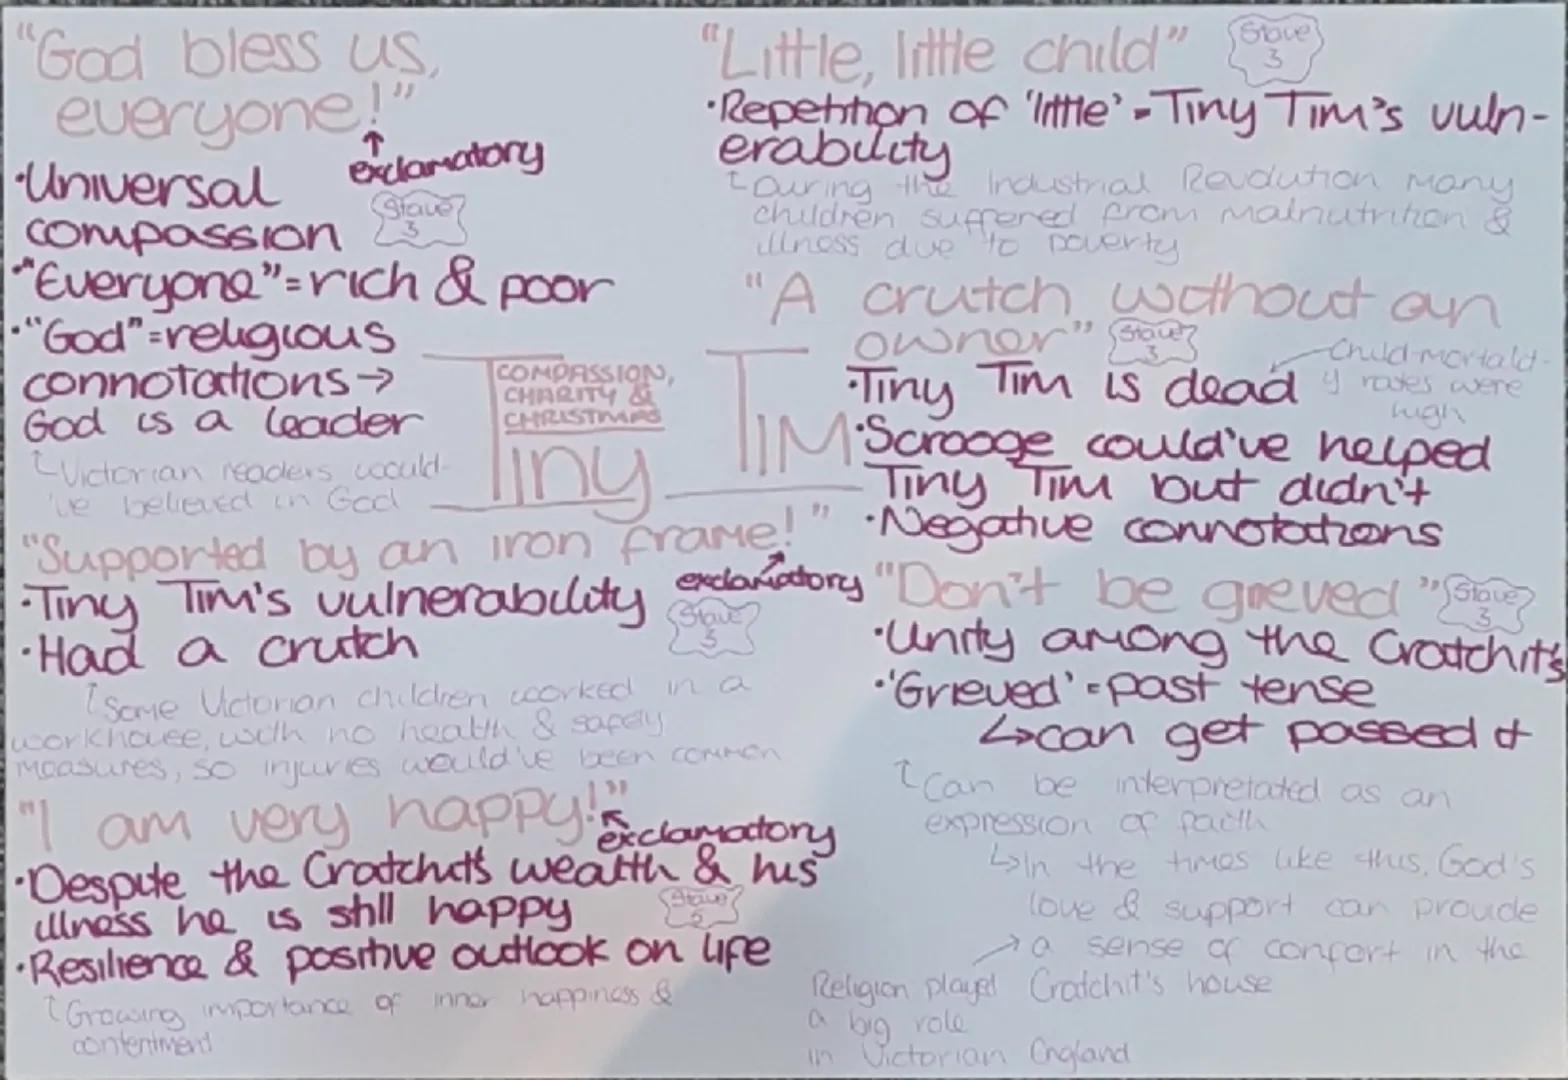 "God bless us,
everyone!"
↑
exclamatory
•Universal
compassion
Stave
3
•"Everyone"=rich & poor
•"God"=religious
connotations→
God is a leader
Victorian readers would-
've believed in God
"Little, little child"
Stave
3
•Repetition of 'little' = Tiny Tim's vuln-
erability
During the Industrial Revolution many
children suffered from malnutrition &
illness due to poverty
"A crutch without an
owner"
Stave
3
•Tiny Tim is dead
Child mortalit-
y rates were
high
•Scrooge could've helped
Tiny Tim but didn't
•Negative connotations
COMPASSION,
CHARITY &
CHRISTMAS
Tiny Tim
"Supported by an iron frame!"
exclamatory
•Tiny Tim's vulnerability
•Had a crutch
Stave
3
Some Victorian children worked in a
workhouse, with no health & safety
measures, so injuries would've been common
"Don't be grieved"
Stave
3
•Unity among the Cratchit's
•'Grieved' = past tense
↳can get passed it
Can be interpretated as an
expression of faith
↳In the times like this, God's
love & support can provide
→ a sense of comfort in the
Cratchit's house
Religion played
a big role
in Victorian England
"I am very happy!"
exclamatory
•Despite the Cratchit's wealth & his
illness he is still happy
Stave
•Resilience & positive outlook on life
Growing importance of inner happiness &
contentment